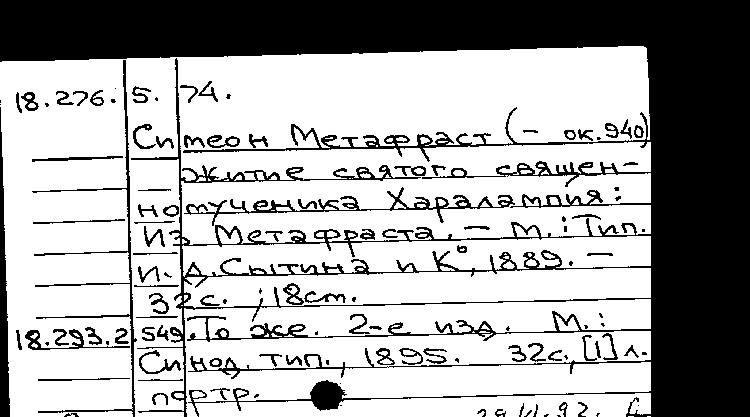 18.276.5.74.
Симеон Метафраст (- ок.940)
Житие святого священ-
номученика Харалампия:
Из Метафраста. - М.: Тип.
И.Д.Сытина и К°, 1889. -
32с. ; 18см.
18.293.2.549. То же. 2-е изд. М.:
Синод. тип., 1895. 32с., [1] л.
портр.